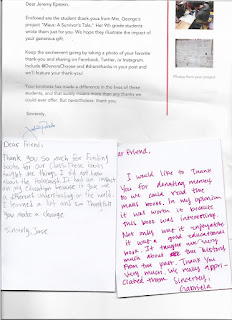 Dear Jeremy Epstein,
Enclosed are the student thank-yous from Mrs. George's
project "Maus: A Survivor's Tale." Her 9th grade students
wrote them just for you. We hope they illustrate the impact
of your generous gift.
Keep the excitement going by taking a photo of your favorite
thank-you and sharing on Facebook, Twitter, or Instagram.
Include @DonorsChoose and #sharethanks in your post and
we'll feature your thank-you!
Your kindness has made a difference in the lives of these
students, and that surely means more than any thanks we
could ever offer. But nevertheless: thank you.
Sincerely,
Photos from your project
Dear Friend,
Thank you so much for Funding
books for our class. These books
taught me things I did not know
about the Holocaust. It had an impact
on my education because it gave me
a different understanding on the world.
I learned a lot and I'm Thankful
You made a change
Sincerely, Jose
Dear Friend,
I would like to thank
You for donating money
so we could read the
maus books. In my opinion
it was worth it because
this book was interesting.
Not only was it enjoyable
it was a good educational
book. It taught us very
much about the history
from the past. Thank You
very much. We really appri-
ciated them Sincerely,
Gabriela